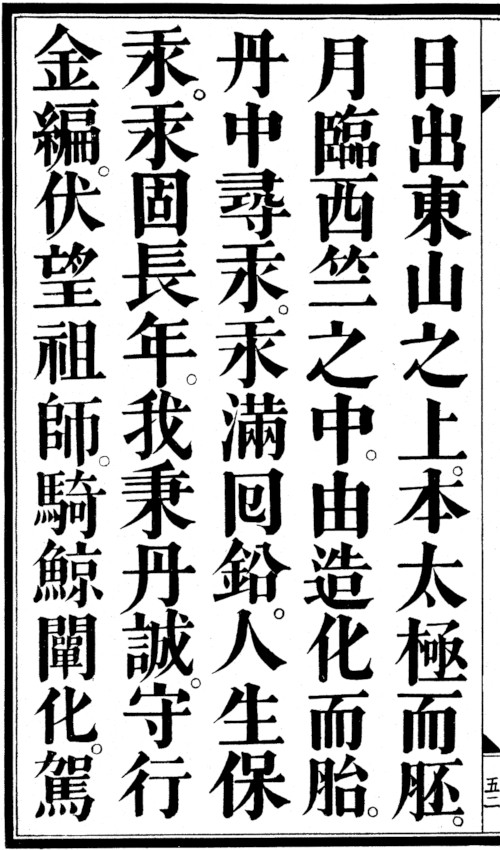 日出東山之上。本太極而胚。
月臨西竺之中。由造化而胎。
丹中尋汞。汞滿囘鉛。人生保
汞。汞固長年。我秉丹誠。守行
金編。伏望祖師。騎鯨闡化。駕
五二